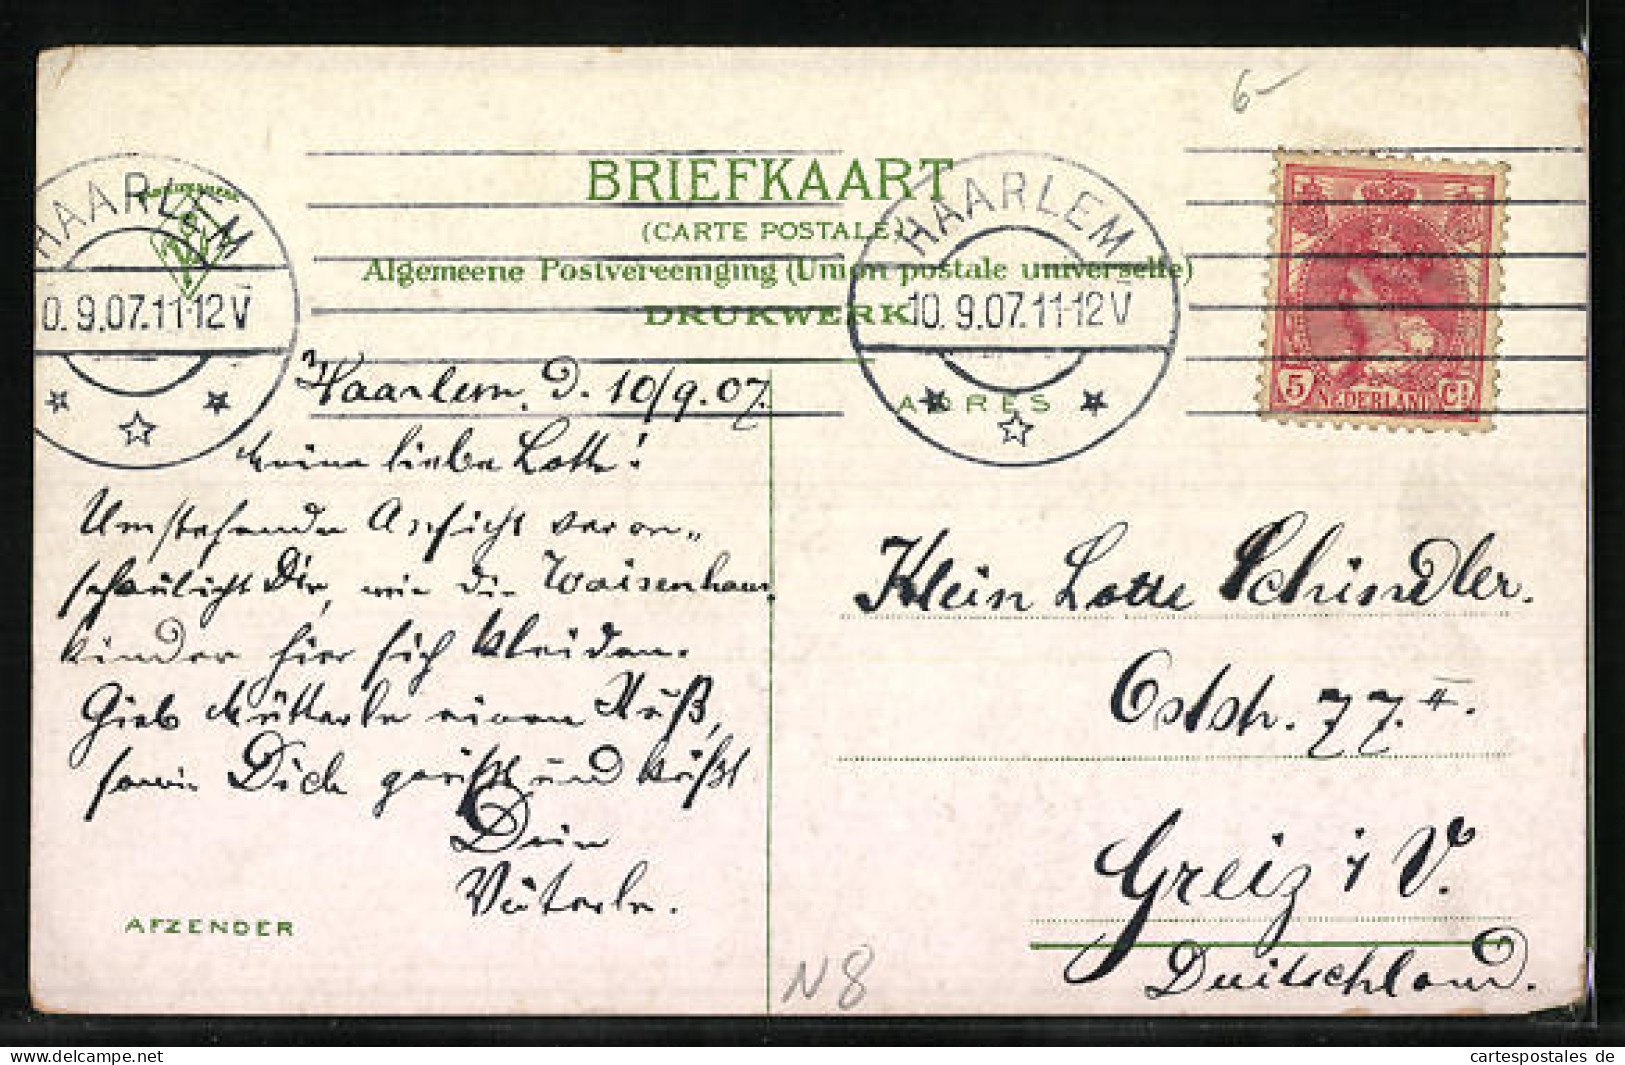 6-
BRIEFKAART
(CARTE POSTALE)
Algemeene Postvereeniging (Union postale universelle)
DRUKWERK
HAARLEM
10.9.07.11-12V
HAARLEM
10.9.07.11-12V
5 NEDERLAND Ct
Haarlem, d. 10/9.07.
Meine liebe Lotte!
Umstehende Ansicht veran-
schaulicht Dir, wie die Waisenhaus
kinder hier sich kleiden.
Gieb Mütterle einen Kuß,
sowie Dich grüßt und küßt
Dein
Väterle.
AFZENDER
ADRES
Klein Lotte Schindler.
Oststr. 77.II.
Greiz i V.
Deutschland.
N8
cartespostales de
https://www.delcampe.net